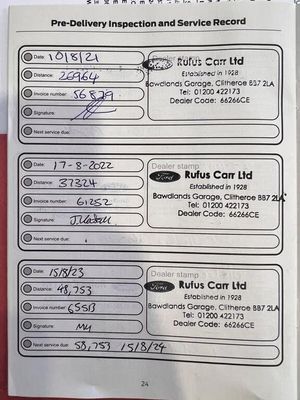 Pre-Delivery Inspection and Service Record
Date: 10/8/21
Distance: 26964
Invoice number: 56829
Signature:
Next service due:
Rufus Carr Ltd
Established in 1928
Bawdlands Garage, Clitheroe BB7 2LA
Tel: 01200 422173
Dealer Code: 66266CE
Date: 17-8-2022
Distance: 37324
Invoice number: 61252
Signature:
Next service due:
Dealer stamp
Ford
Rufus Carr Ltd
Established in 1928
Bawdlands Garage, Clitheroe BB7 2LA
Tel: 01200 422173
Dealer Code: 66266CE
Date: 15/8/23
Distance: 48,753
Invoice number: 65513
Signature:
Next service due: 58,753 15/8/24
Dealer stamp
Ford
Rufus Carr Ltd
Established in 1928
Bawdlands Garage, Clitheroe BB7 2LA
Tel: 01200 422173
Dealer Code: 66266CE
24